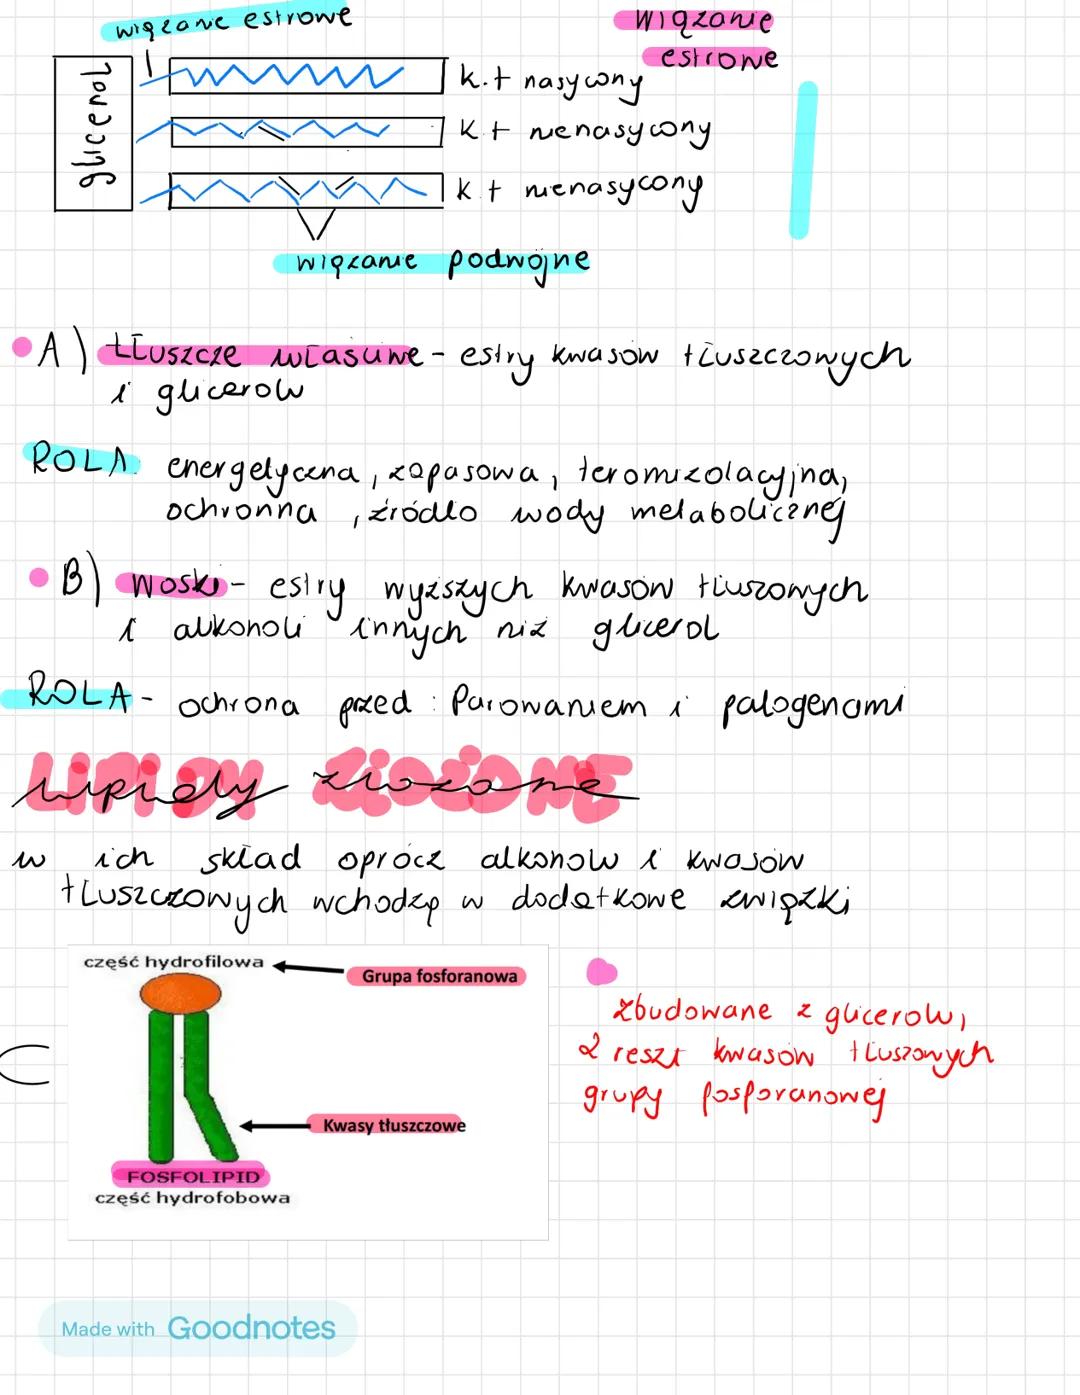 wiązanie estrowe
wiązanie
estrowe
glicerol
k.t nasycony
k.t nienasycony
k.t nienasycony
wiązanie podwójne
A) tłuszcze właściwe - estry kwasów tłuszczowych
i glicerolu
ROLA energetyczna, zapasowa, teromizolacyjna,
ochronna, źródło wody metabolicznej
B) Woski - estry wyższych kwasów tłuszowych
i alkoholi innych niż glicerol
ROLA - ochrona przed: Parowaniem i patogenami
LIPIDY ZŁOŻONE
w ich skład oprócz alkoholu i kwasów
tłuszczowych wchodzą w dodatkowe związki
część hydrofilowa
Grupa fosforanowa
zbudowane z glicerolu,
2 reszt kwasów tłuszowych
grupy fosforanowej
Kwasy tłuszczowe
FOSFOLIPID
część hydrofobowa
Made with Goodnotes